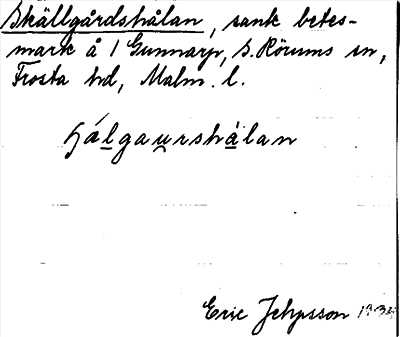 Skällgårdshålan, sank betes-
mark å 1 Gunnarp, S. Rörums sn,
Frosta hd, Malm. l.
hálgaurshålan
Eric Jehpsson 1934